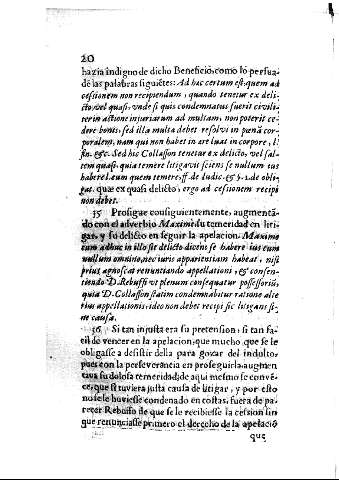 20
hazia indigno de dicho Beneficio, como lo persua-
dē las palabras siguiētes: Ad hac certum est, quem ad
cessionem non recipiendum, quando tenetur ex deli-
cto, vel quasi, vnde si quis condemnatus fuerit civili-
ter in actione injuriarum ad multam, non poterit ce-
dere bonis, sed illa multa debet resolvi in pœnā cor-
poralem, nam qui non habet in ære luat in corpore, l.
fin. &c. Sed hic Collasson tenetur ex delicto, vel sal-
tem quasi, quia temere litigavit sciens se nullum ius
habere l. eum quem temere, ff. de Iudic. §. 1. de obli-
gat. quæ ex quasi delicto, ergo ad cessionem recipi
non debet.
35 Prosigue consiguientemente, augmentā-
do con el adverbio Maximè su temeridad en liti-
gar, y su delicto en seguir la apelacion. Maximè
eum adhuc in illo sit delicto dicens se habere ius cum
nullum omnino, nec iuris apparentiam habeat, nisi
prius agnoscat renuntiando appellationi, & consen-
tiendo D. Rebuffi vt plenum consequatur possessoriū,
quia D. Collasson statim condemnabitur ratione alte-
rius appellationis, ideo non debet recipi sic litigans si-
ne causa.
36 Si tan injusta era su pretension, si tan fa-
cil de vencer en la apelacion, que mucho, que se le
obligasse à desistir della para gozar del indulto,
pues con la perseverancia en proseguirla augmen
tava su dolosa temeridad; de aqui mesmo se convē-
ce, que si tuviera justa causa de litigar, y por esto
no se le huviesse condenado en costas, fuera de pa-
recer Rebuffo de que se le recibiesse la cession sin
que renunciasse primero el derecho de la apelació
que